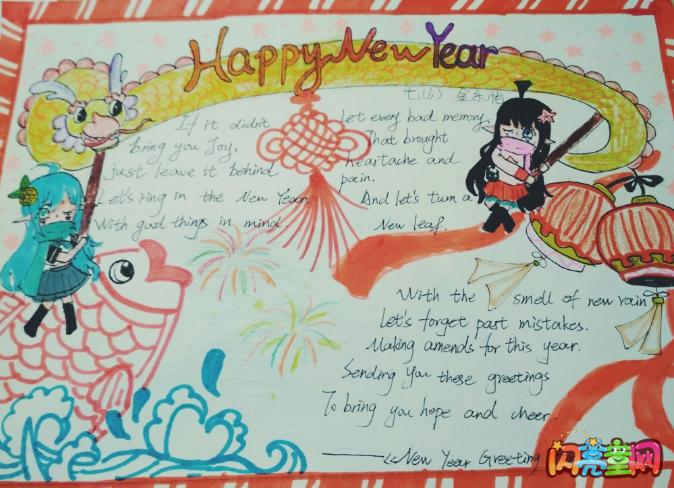 Happy New Year
七(16)
If it didn't
bring you Joy,
just leave it behind
Let's ring in the New Year.
With good things in mind.
Let every bad memory,
That brought
heartache and
pain.
And let's turn a
New leaf.
With the smell of new rain
Let's forget past mistakes.
Making amends for this year.
Sending you these greetings
To bring you hope and cheer.
——《New Year Greeting
闪亮童网